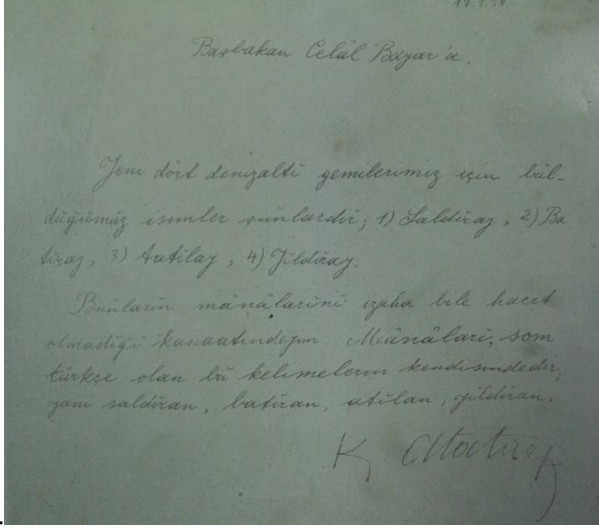 Başbakan Celâl Bayar'a.
Yeni dört denizaltı gemilerimiz için bul-
duğumuz isimler şunlardır; 1) Saldıray, 2) Ba
tıray, 3) Atılay, 4) Yıldıray.
Bunların mânâlarını izaha bile hacet
olmadığı kanaatındayım. Mânâları, som
türkçe olan bu kelimelerin kendisindedir,
yani saldıran, batıran, atılan, yıldıran.
K. Atatürk